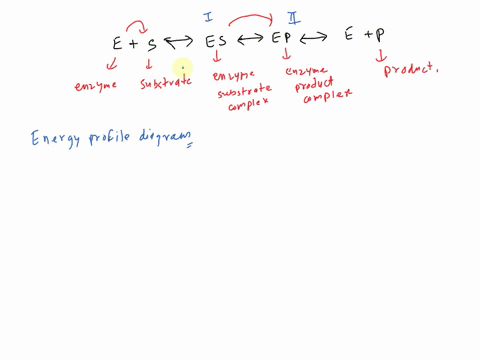 I II
E + S ⟷ ES ⟷ EP ⟷ E + P
enzyme substrate enzyme substrate complex enzyme product complex product.
Energy profile diagram